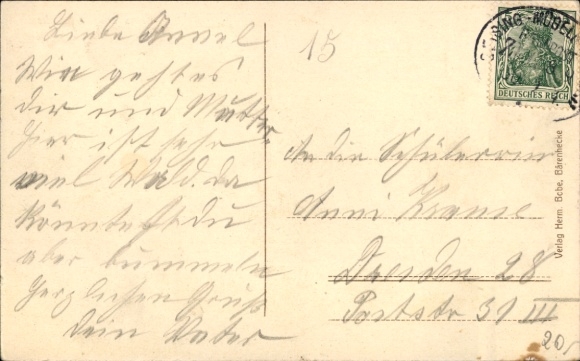 Liebe
Wie geht es
dir und Mutter.
Hier ist sehr
viel Wald. da
könntest du
aber bummeln
Herzlichen Gruß
dein Vater
15
DEUTSCHES REICH
An die Schülerin
Anni Krause
Dresden 28
Poststr 31 III
Verlag Herm. Bche, Bärenhecke
20